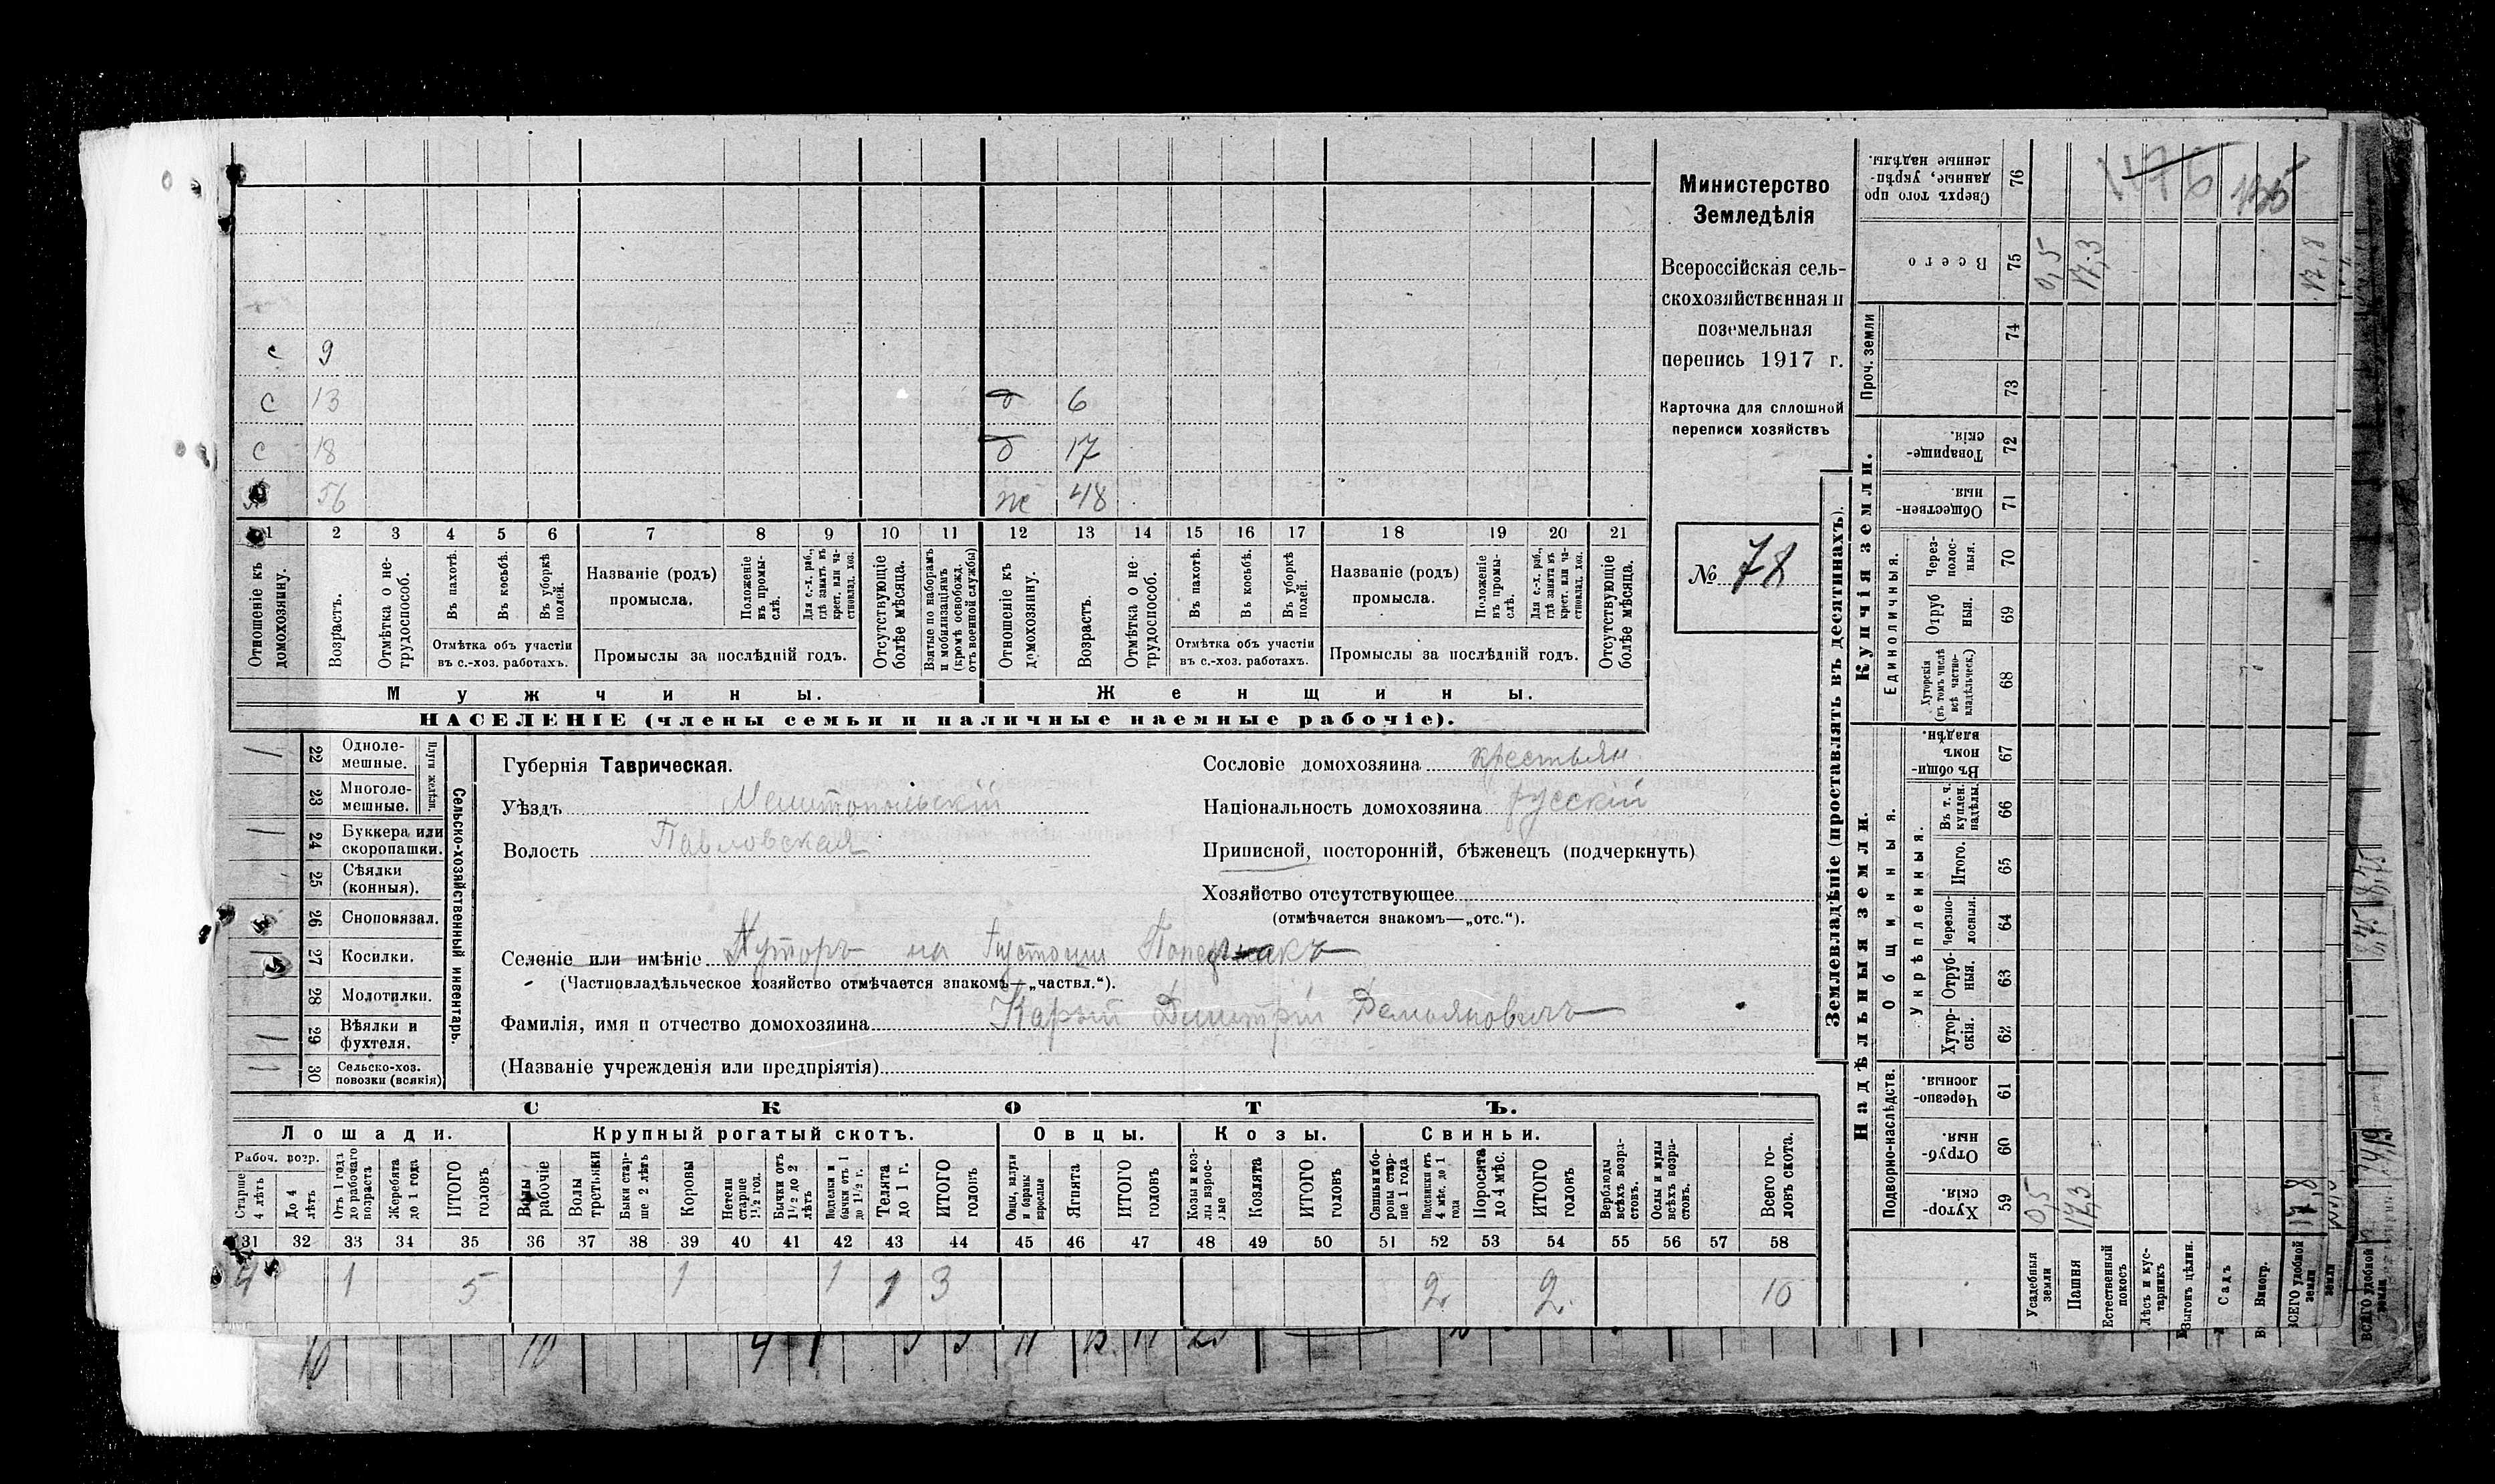 с 9
с 13 д 6
с 18 д 17
х 56 ж 48
1 2 3 4 5 6 7 8 9 10 11 12 13 14 15 16 17 18 19 20 21
Отношеніе къ домохозяину.
Возрастъ.
Отмѣтка о не-
трудоспособ.
Въ пахотѣ.
Въ косьбѣ.
Въ уборкѣ
полей.
Отмѣтка объ участіи
въ с.-хоз. работахъ.
Названіе (родъ)
промысла.
Положеніе
въ промы-
слѣ.
Для с.-х. раб.,
гдѣ занятъ въ
крест. или ча-
стновлад. хоз.
Промыслы за послѣдній годъ.
Отсутствующіе
болѣе мѣсяца.
Взятые по наборамъ
и мобилизаціямъ
(кромѣ освобожд.
отъ военной службы)
Отношеніе къ
домохозяину.
Возрастъ.
Отмѣтка о не-
трудоспособ.
Въ пахотѣ.
Въ косьбѣ.
Въ уборкѣ
полей.
Отмѣтка объ участіи
въ с.-хоз. работахъ.
Названіе (родъ)
промысла.
Положеніе
въ промы-
слѣ.
Для с.-х. раб.,
гдѣ занята въ
крест. или ча-
стновлад. хоз.
Промыслы за послѣдній годъ.
Отсутствующіе
болѣе мѣсяца.
Мужчины. Женщины.
НАСЕЛЕНІЕ (члены семьи и наличные наемные рабочіе).
Министерство
Земледѣлія
Всероссійская сель-
скохозяйственная и
поземельная
перепись 1917 г.
Карточка для сплошной
переписи хозяйствъ
№ 78
Сельско-хозяйственный инвентарь.
Плуги желѣзн.
1 22 Одноле-
мешные.
23 Многоле-
мешные.
1 24 Буккера или
скоропашки.
25 Сѣялки
(конныя).
26 Сноповязал.
1 27 Косилки.
28 Молотилки.
1 29 Вѣялки и
фухтеля.
1 30 Сельско-хоз.
повозки (всякія)
Губернія Таврическая.
Уѣздъ Мелитопольскій
Волость Павловская
Сословіе домохозяина крестьян.
Національность домохозяина русскій
Приписной, посторонній, бѣженецъ (подчеркнуть)
Хозяйство отсутствующее
(отмѣчается знакомъ—„отс.“).
Селеніе или имѣніе Хуторъ на пустоши
(Частновладѣльческое хозяйство отмѣчается знакомъ—„частвл.“).
Фамилія, имя и отчество домохозяина Карый Дмитрій Демьяновичъ
(Названіе учрежденія или предпріятія)
СКОТЪ.
Лошади. Крупный рогатый скотъ. Овцы. Козы. Свиньи.
Рабоч. возр.
Старше
4 лѣтъ
До 4
лѣтъ
Отъ 1 года
до рабочаго
возраста
Жеребята
до 1 года
ИТОГО
головъ
Волы
рабочіе
Волы
третьяки
Быки стар-
ше 2 лѣтъ
Коровы
Нетели
старше
1½ год.
Бычки отъ
1½ до 2
лѣтъ
Подтелки и
бычки отъ 1
до 1½ г.
Телята
до 1 г.
ИТОГО
головъ
Овцы, валухи
и бараны
взрослые
Ягнята
ИТОГО
головъ
Козы и коз-
лы взрос-
лые
Козлята
ИТОГО
головъ
Свиньи и бо-
ровы стар-
ше 1 года
Подсвинки отъ
4 мѣс. до 1
года
Поросята
до 4 мѣс.
ИТОГО
головъ
Верблюды
всѣхъ возра-
стовъ.
Ослы и мулы
всѣхъ возра-
стовъ.
Всего го-
ловъ скота.
31 32 33 34 35 36 37 38 39 40 41 42 43 44 45 46 47 48 49 50 51 52 53 54 55 56 57 58
4 1 5 1 1 1 3 2 2 10
Землевладѣніе (проставлять въ десятинахъ).
Надѣльныя земли. Купчія земли. Проч. земли
Подворно-наслѣдств. Общинныя. Единоличныя.
Укрѣпленныя.
Хутор-
скія.
Отруб-
ныя.
Черезпо-
лосныя.
Хутор-
скія.
Отруб-
ныя.
Черезпо-
лосныя.
Итого.
Въ т. ч.
куплен.
надѣлы.
Въ общи-
номъ
владѣн.
Хуторскія
(въ томъ числѣ
всѣ частно-
владѣльческ.)
Отруб
ныя.
Через-
полос-
ныя.
Обществен-
ныя.
Товарище-
скія.
Всего
Сверхъ того про
данные, укрѣп-
ленные надѣлы.
59 60 61 62 63 64 65 66 67 68 69 70 71 72 73 74 75 76
Усадебныя
земли 0,5 0,5
Пашня 17,3 17,3
Естественный
покосъ
Лѣсъ и кус-
тарникъ
Выгонъ цѣлин.
Садъ
Виногр.
ВСЕГО удобной
земли 17,8 17,8
ВСЕГО удобной
земли